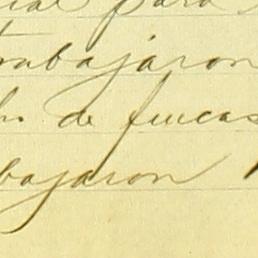 para
trabajáron
de fincas
bajaron